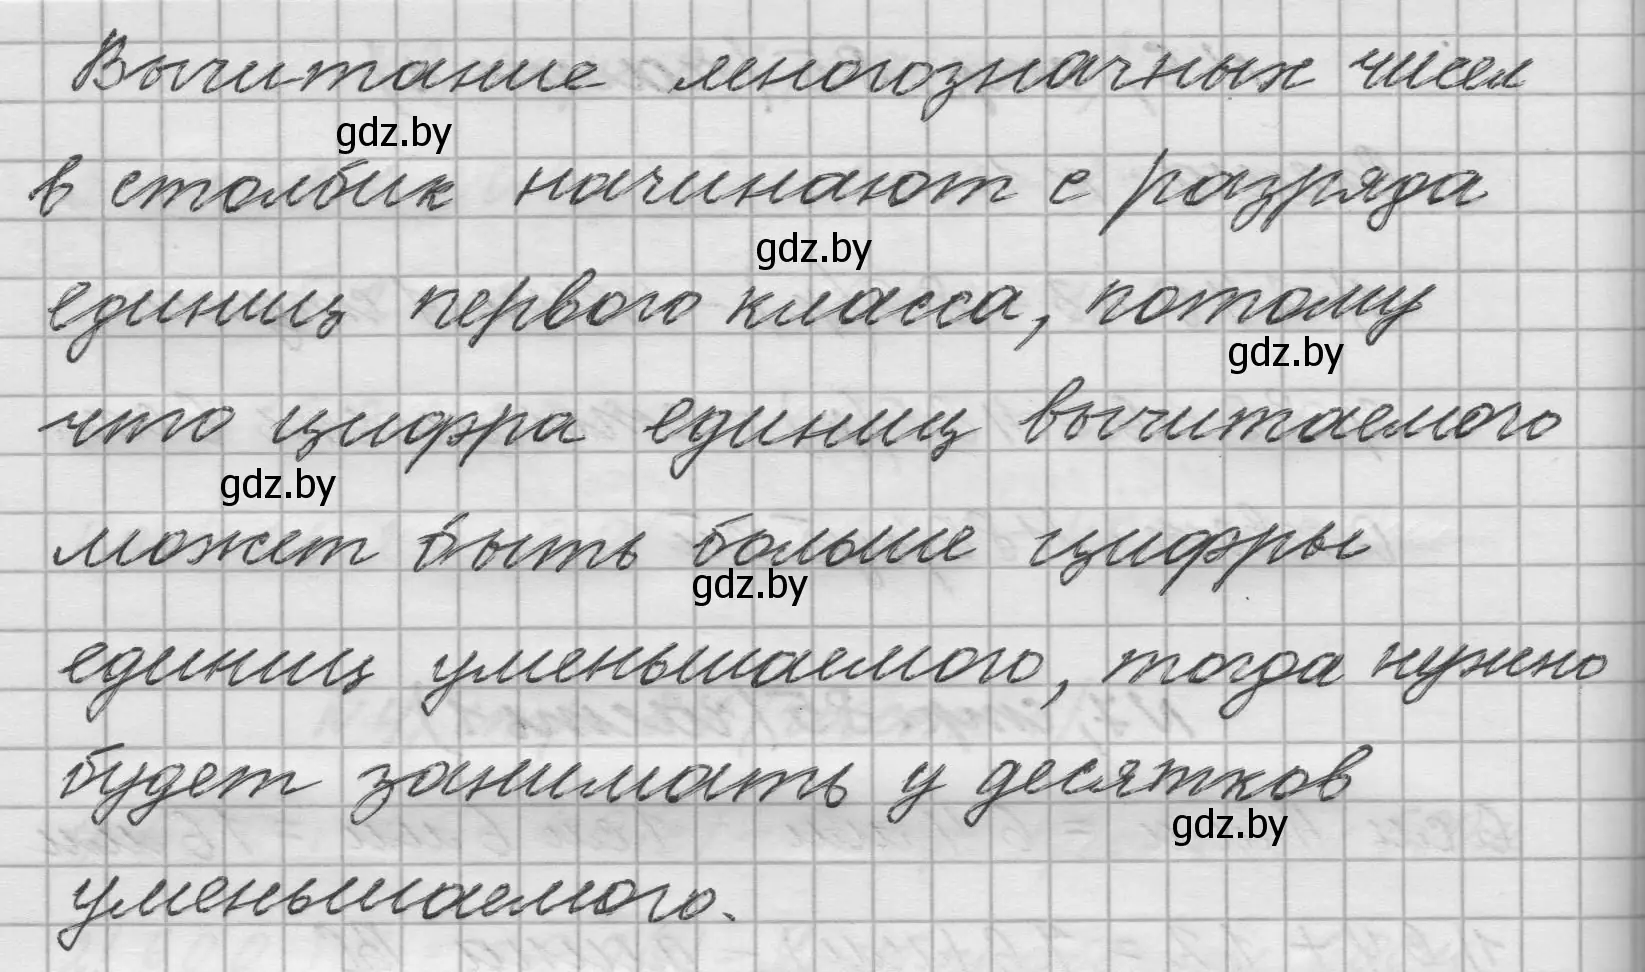 Вычитание многозначных чисел
gdz.by
в столбик начинают с разряда
gdz.by
единиц первого класса, потому
gdz.by
что цифра единиц вычитаемого
gdz.by
может быть больше цифры
gdz.by
единиц уменьшаемого, тогда нужно
будет занимать у десятков
gdz.by
уменьшаемого.